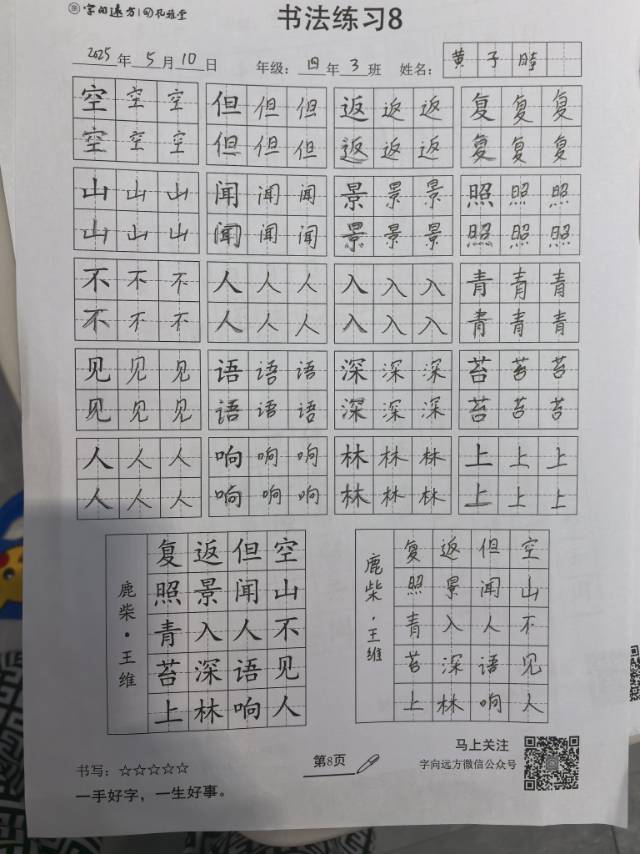 字向远方
书法练习8
2025年5月10日 年级：四年3班 姓名：黄子晴
空空空 但但但 返返返 复复复
空空空 但但但 返返返 复复复
山山山 闻闻闻 景景景 照照照
山山山 闻闻闻 景景景 照照照
不不不 人人人 入入入 青青青
不不不 人人人 入入入 青青青
见见见 语语语 深深深 苔苔苔
见见见 语语语 深深深 苔苔苔
人人人 响响响 林林林 上上上
人人人 响响响 林林林 上上上
鹿柴·王维
空山不见人
但闻人语响
返景入深林
复照青苔上
鹿柴·王维
空山不见人
但闻人语响
返景入深林
复照青苔上
书写：☆☆☆☆☆
一手好字，一生好事。
第8页
马上关注
字向远方微信公众号